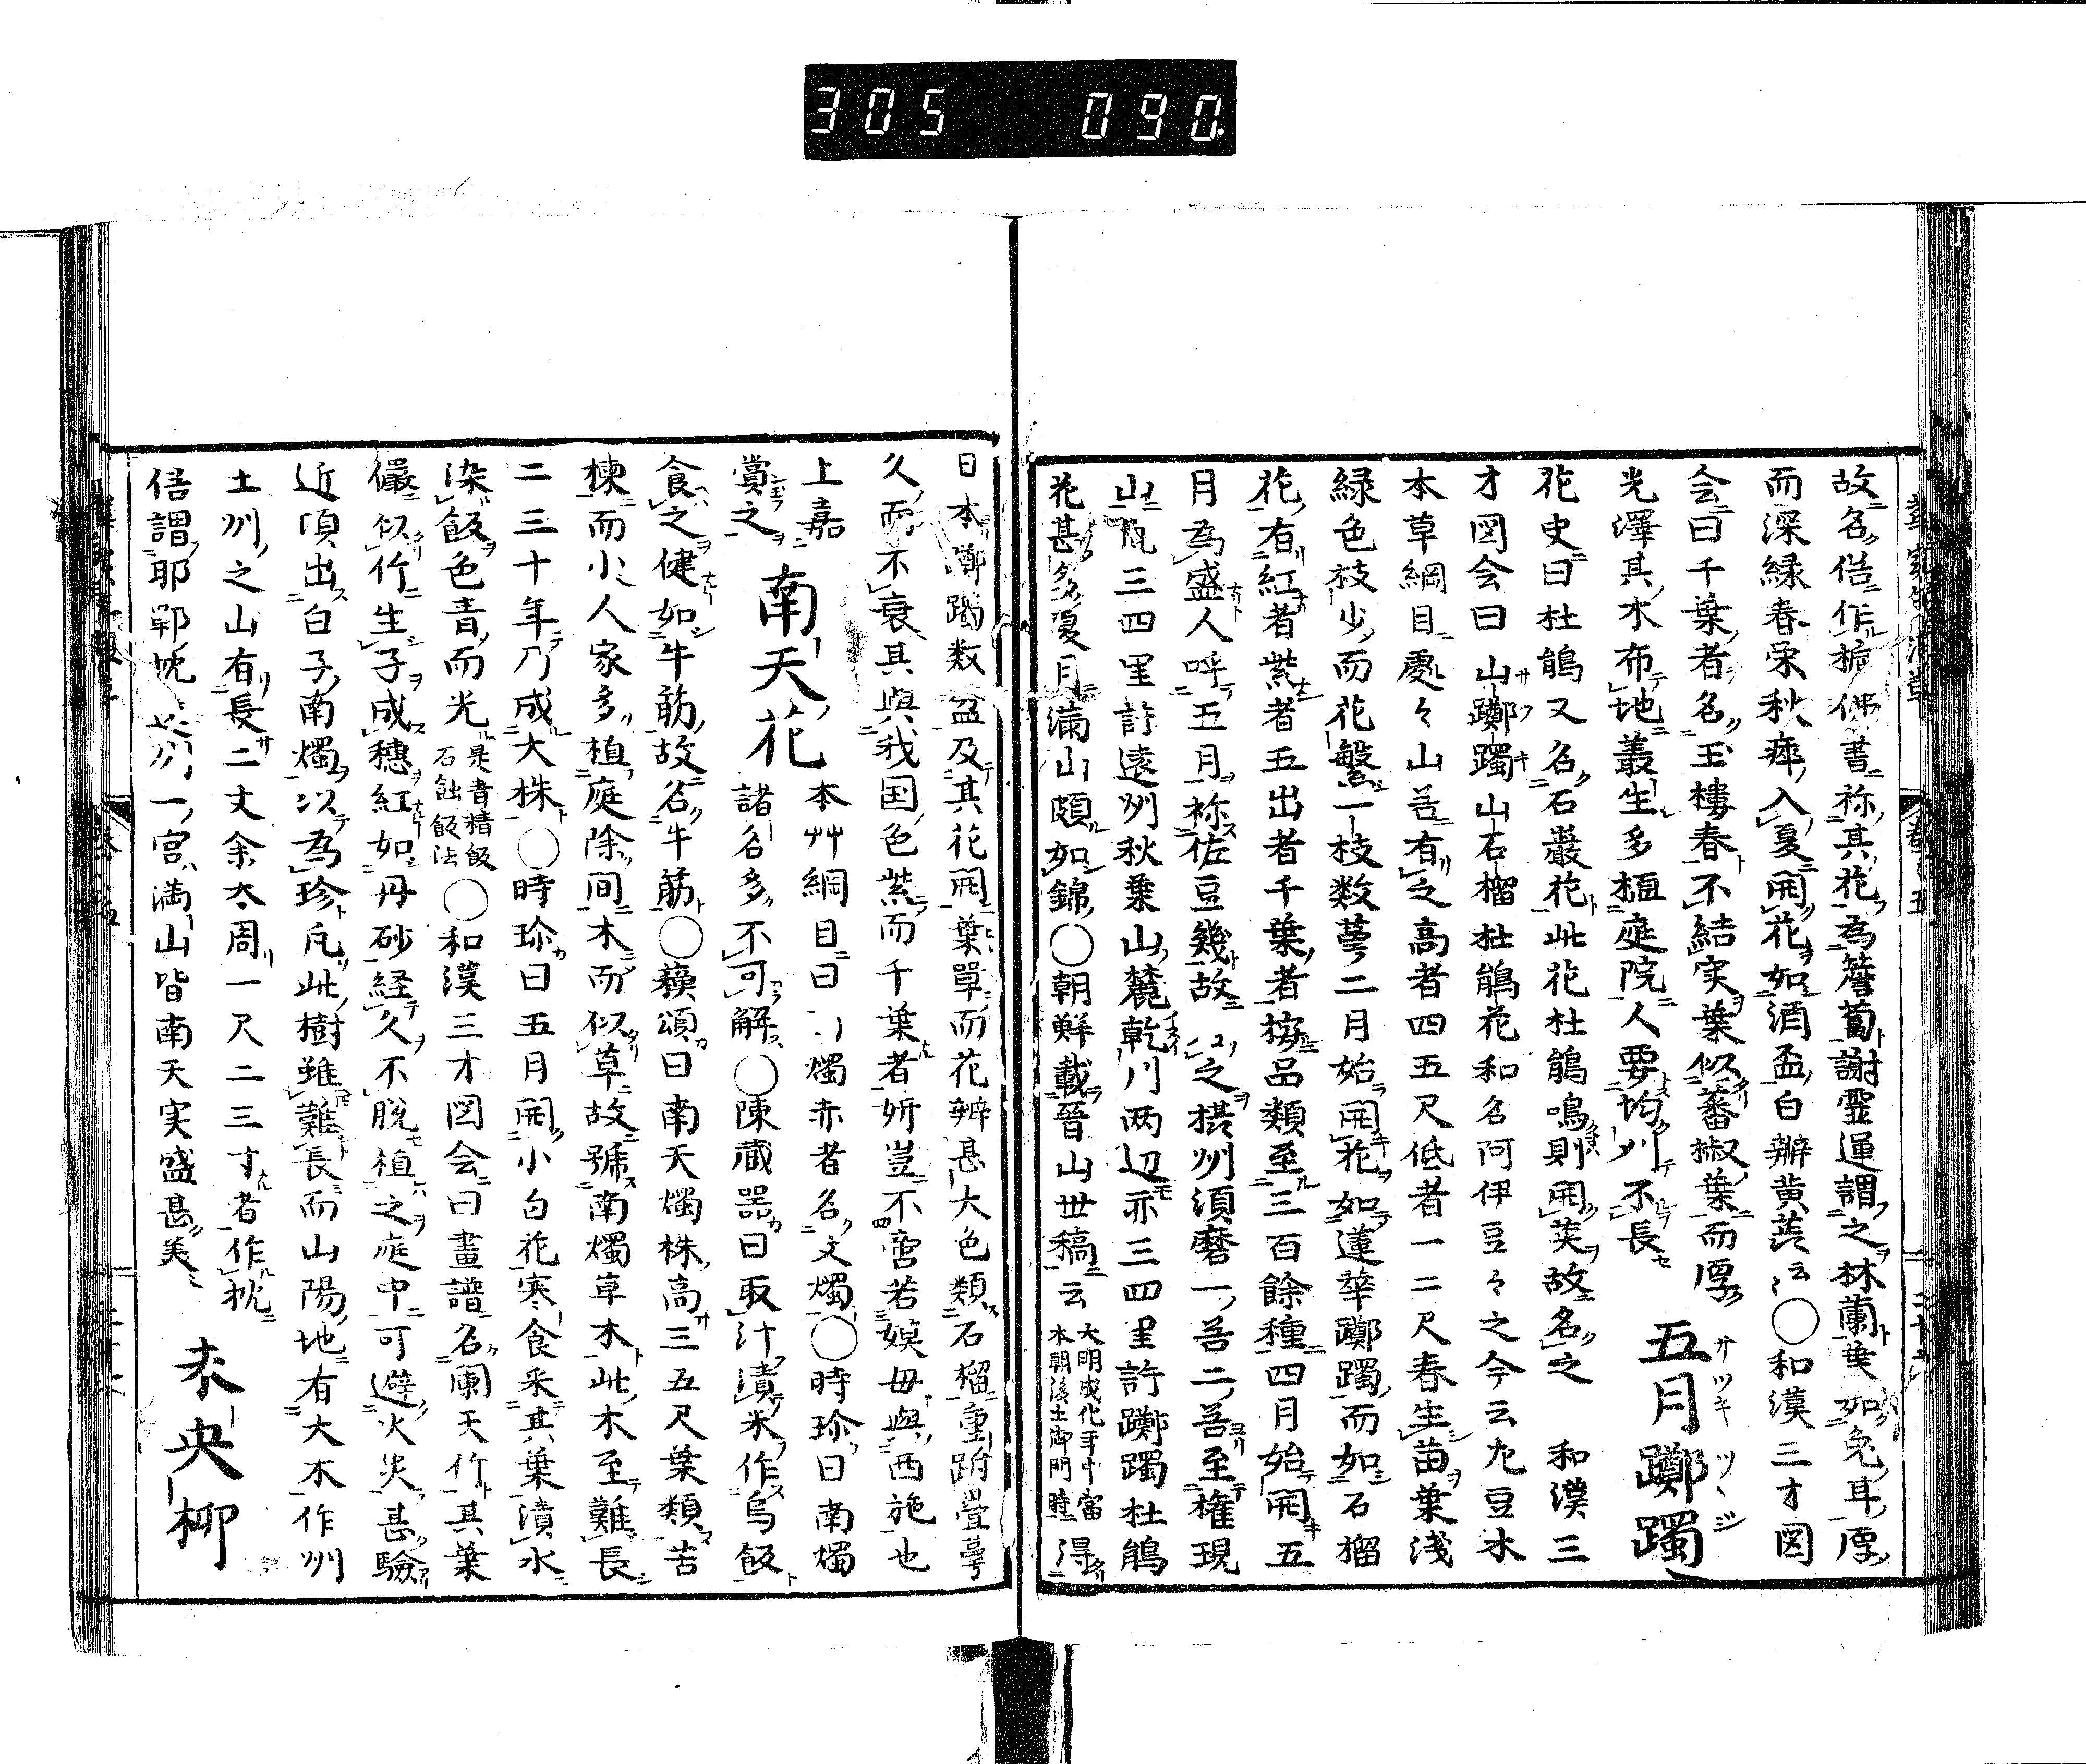 305 090
故名俗作梔佛書称其花為簷蔔謝霊運謂之林蘭葉如兔耳厚
而深緑春栄秋瘁入夏開花如酒盃白辦黄蕋云々〇和漢三才図
会曰千葉者名玉樓春不結実葉似蕃椒葉而厚　五月躑躅
サツキツヽジ
光澤其木布地叢生多植庭院人要均刈不長
花史曰杜鵑又名石巖花此花杜鵑鳴則開英故名之　和漢三
才図会曰山躑躅山石榴杜鵑花和名阿伊豆々之今云九豆木
本草綱目處々山谷有之高者四五尺低者一二尺春生苗葉浅
緑色枝少而花繁一枝数萼二月始開花如蓮華躑躅而如石榴
花有紅者紫者五出者千葉者按品類至三百餘種四月始開五
月為盛人呼五月称佐豆幾故之摂州須磨一谷二谷至権現
山凡三四里許遠州秋葉山麓乾川両辺亦三四里許躑躅杜鵑
花甚多夏月満山頗如錦〇朝鮮載晉山世稿云大明成化年中當本朝後土御門時得
日本躑躅数盆及其花開葉單而花辦甚大色類石榴重跗畳萼
久而不衰其與我国色紫而千葉者妍豈不啻若嫫母與西施也
上嘉　本艸綱目曰燭赤者名文燭〇時珍曰南燭
賞之　南天花　諸名多不可解〇陳蔵器曰取汁漬米作烏飯
食之健如牛筋故名牛筋〇蘓頌曰南天燭株高三五尺葉類苦
楝而小人家多植庭除间木而似草故號南燭草木此木至難長
二三十年乃成大株〇時珍曰五月開小白花寒食采其葉漬水
染飯色青而光是青精飯石蝕飯法〇和漢三才図会曰畫譜名闌天竹其葉
儼似竹生子成穂紅如丹砂経久不脱植之庭中可避火災甚驗
近頃出白子南燭以為珍凡此樹雖難長而山陽地有大木作州
土州之山有長二丈余太周一尺二三寸者作枕
俗謂耶鄲枕一宮満山皆南天実盛甚美　未央柳